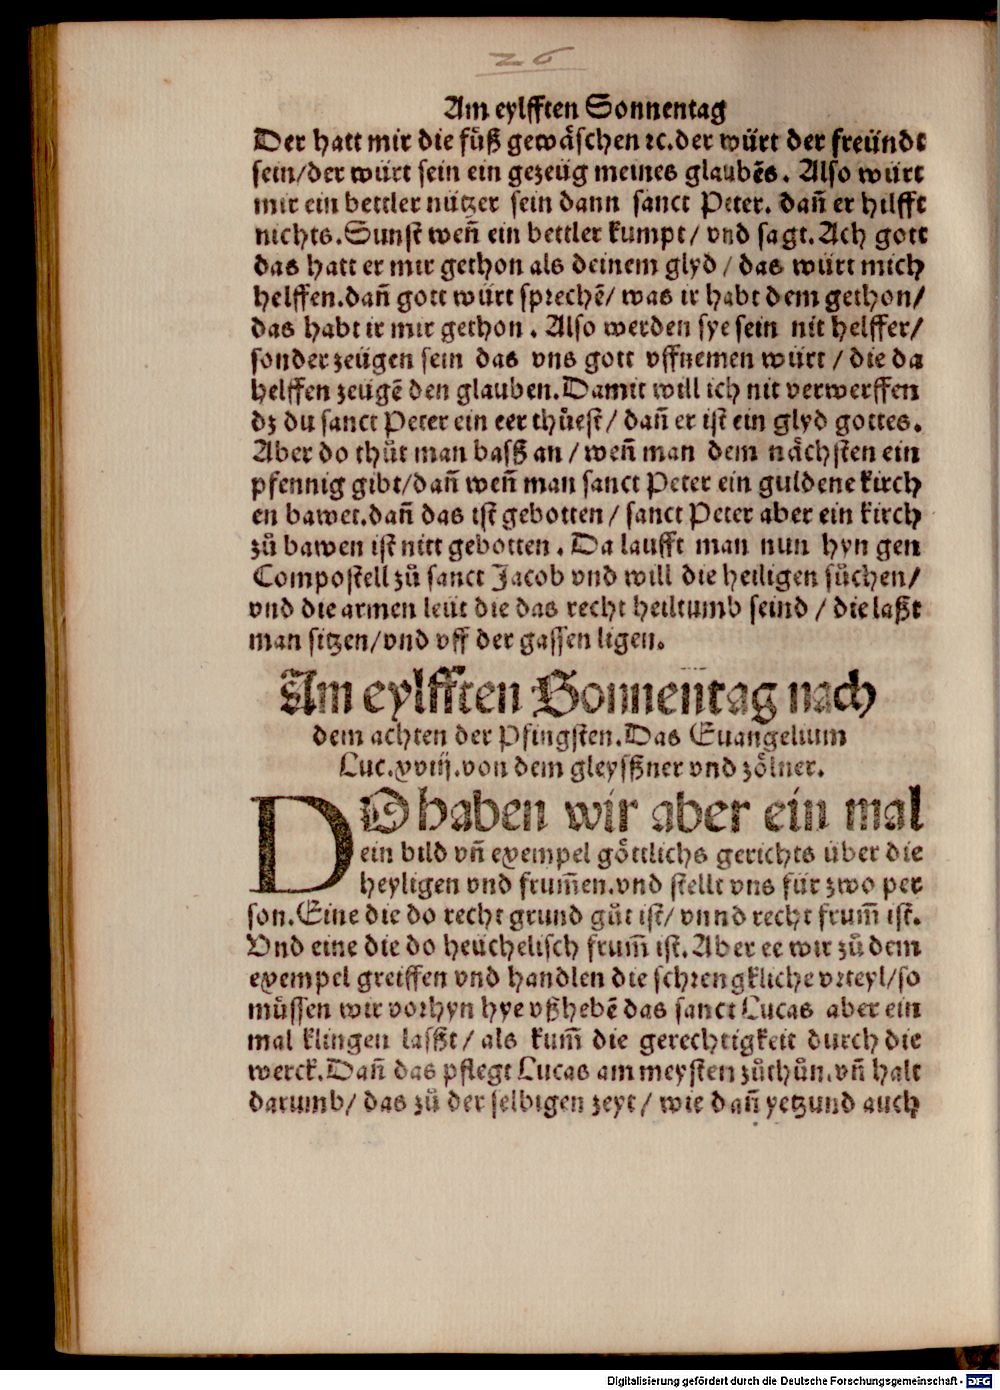 26
Am eylfften Sonnentag
Der hatt mir die fůß gewäschen ⁊c. der würt der freündt
sein/der würt sein ein gezeüg meines glaubēs. Also würt
mir ein bettler nützer sein dann sanct Peter. dañ er hilfft
nichts. Sunst weñ ein bettler kumpt/ vnd sagt. Ach gott
das hatt er mir gethon als deinem glyd / das würt mich
helffen. dañ gott würt sprechē/ was ir habt dem gethon/
das habt ir mir gethon . Also werden sye sein nit helffer/
sonder zeügen sein das vns gott vffnemen würt / die da
helffen zeügē den glauben. Damit will ich nit verwerffen
dz du sanct Peter ein eer thůest/ dañ er ist ein glyd gottes.
Aber do thůt man bassz an / weñ man dem nächsten ein
pfennig gibt/dañ weñ man sanct Peter ein guldene kirch
en bawet. dañ das ist gebotten / sanct Peter aber ein kirch
zů bawen ist nitt gebotten . Da laufft man nun hyn gen
Compostell zů sanct Jacob vnd will die heiligen sůchen/
vnd die armen leüt die das recht heiltumb seind / die laßt
man sitzen/vnd vff der gassen ligen.
Am eylfften Sonnentag nach
dem achten der Pfingsten. Das Euangelium
Luc. xviij. von dem gleyßner vnd zölner.
DO haben wir aber ein mal
ein bild vñ exempel göttlichs gerichts über die
heyligen vnd frum̄en. vnd stellt vns für zwo per
son. Eine die do recht grund gůt ist/ vnnd recht frum̄ ist.
Vnd eine die do heüchelisch frum̄ ist. Aber ee wir zů dem
exempel greiffen vnd handlen die schrengkliche vrteyl/so
müssen wir vorhyn hye vßhebē das sanct Lucas aber ein
mal klingen lasßt/ als kum̄ die gerechtigkeit durch die
werck. Dañ das pflegt Lucas am meysten zůthůn. vñ halt
darumb/ das zů der selbigen zeyt/ wie dañ yetzund auch
Digitalisierung gefördert durch die Deutsche Forschungsgemeinschaft - DFG